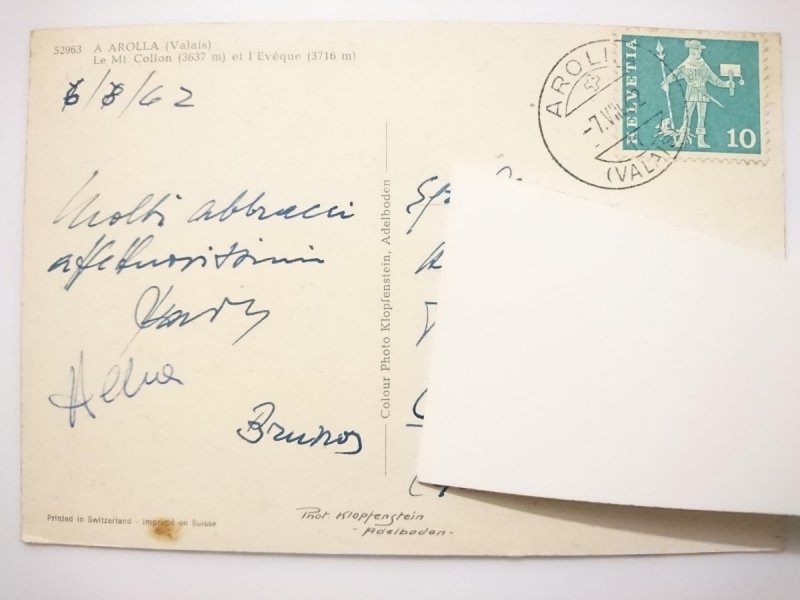 52963 A AROLLA (Valais)
Le Mt. Collon (3637 m) et l'Evêque (3716 m)
/8/62
Molti abbracci
affettuosissimi
Bruno
Colour Photo Klopfenstein, Adelboden
HELVETIA
10
AROLLA
-7.VIII.
(VALAIS)
Printed in Switzerland - Imprimé en Suisse
Phot. Klopfenstein
- Adelboden -